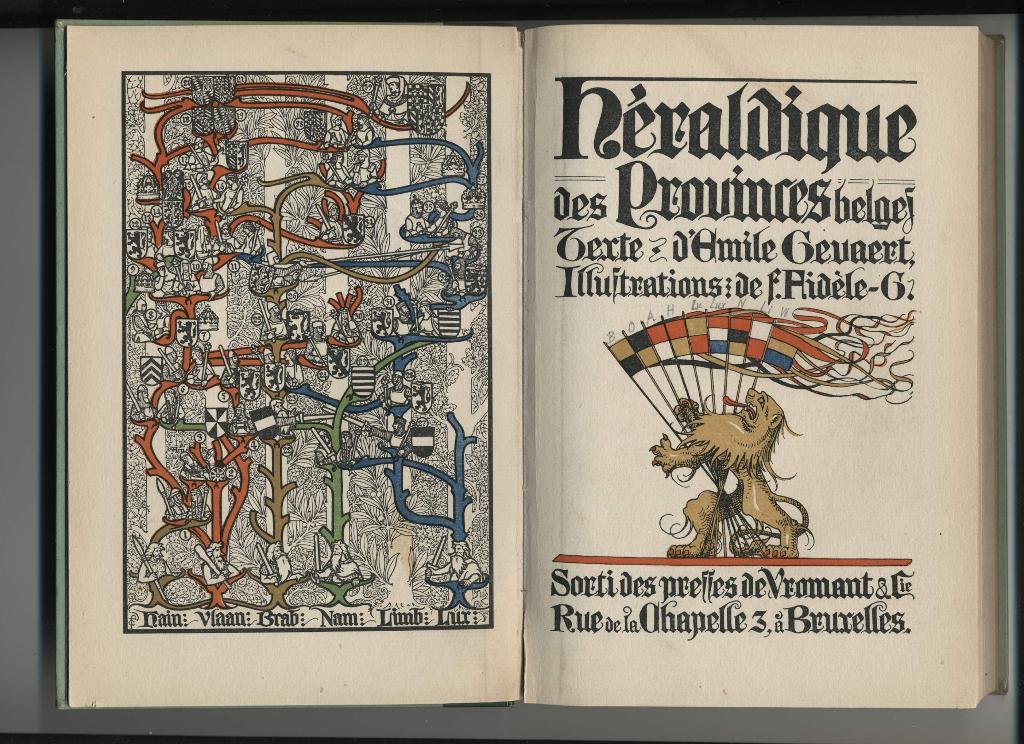 Hain: Vlaan: Brab: Nam: Limb: Lux:
Héraldique
des Provinces belges
Texte d'Emile Gevaert,
Illustrations: de f. Fidèle-G.
B O A H Li Lux N
W
Sorti des presses de Vromant & Cie
Rue de la Chapelle 3, à Bruxelles.